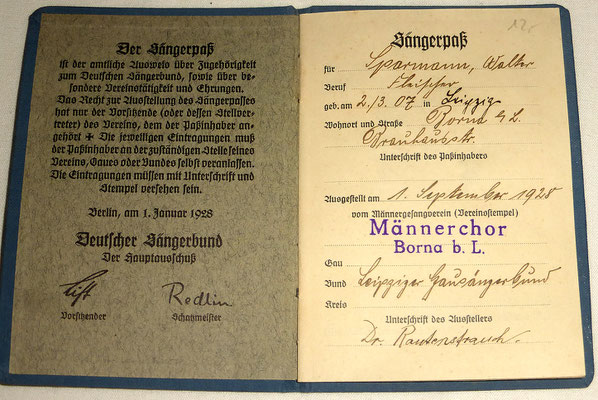 Der Sängerpaß
ist der amtliche Ausweis über Zugehörigkeit
zum Deutschen Sängerbund, sowie über be-
sondere Vereinstätigkeit und Ehrungen.
Das Recht zur Ausstellung des Sängerpasses
hat nur der Vorsitzende (oder dessen Stellver-
treter) des Vereins, dem der Paßinhaber an-
gehört + Die jeweiligen Eintragungen muß
der Paßinhaber an der zuständigen Stelle seines
Vereins, Gaues oder Bundes selbst veranlassen.
Die Eintragungen müssen mit Unterschrift und
Stempel versehen sein.
Berlin, am 1. Januar 1928
Deutscher Sängerbund
Der Hauptausschuß
List Redlin
Vorsitzender Schatzmeister
12,-
Sängerpaß
für Sparmann, Walter
Beruf Fleischer
geb. am 2./3. 07 in Leipzig
Wohnort und Straße Borna b/L.
Brauhausstr.
Unterschrift des Paßinhabers
Ausgestellt am 1. September 1928
vom Männergesangverein (Vereinsstempel)
Männerchor
Borna b. L.
Gau
Bund Leipziger Gausängerbund
Kreis
Unterschrift des Ausstellers
Dr. Rautenstrauch.